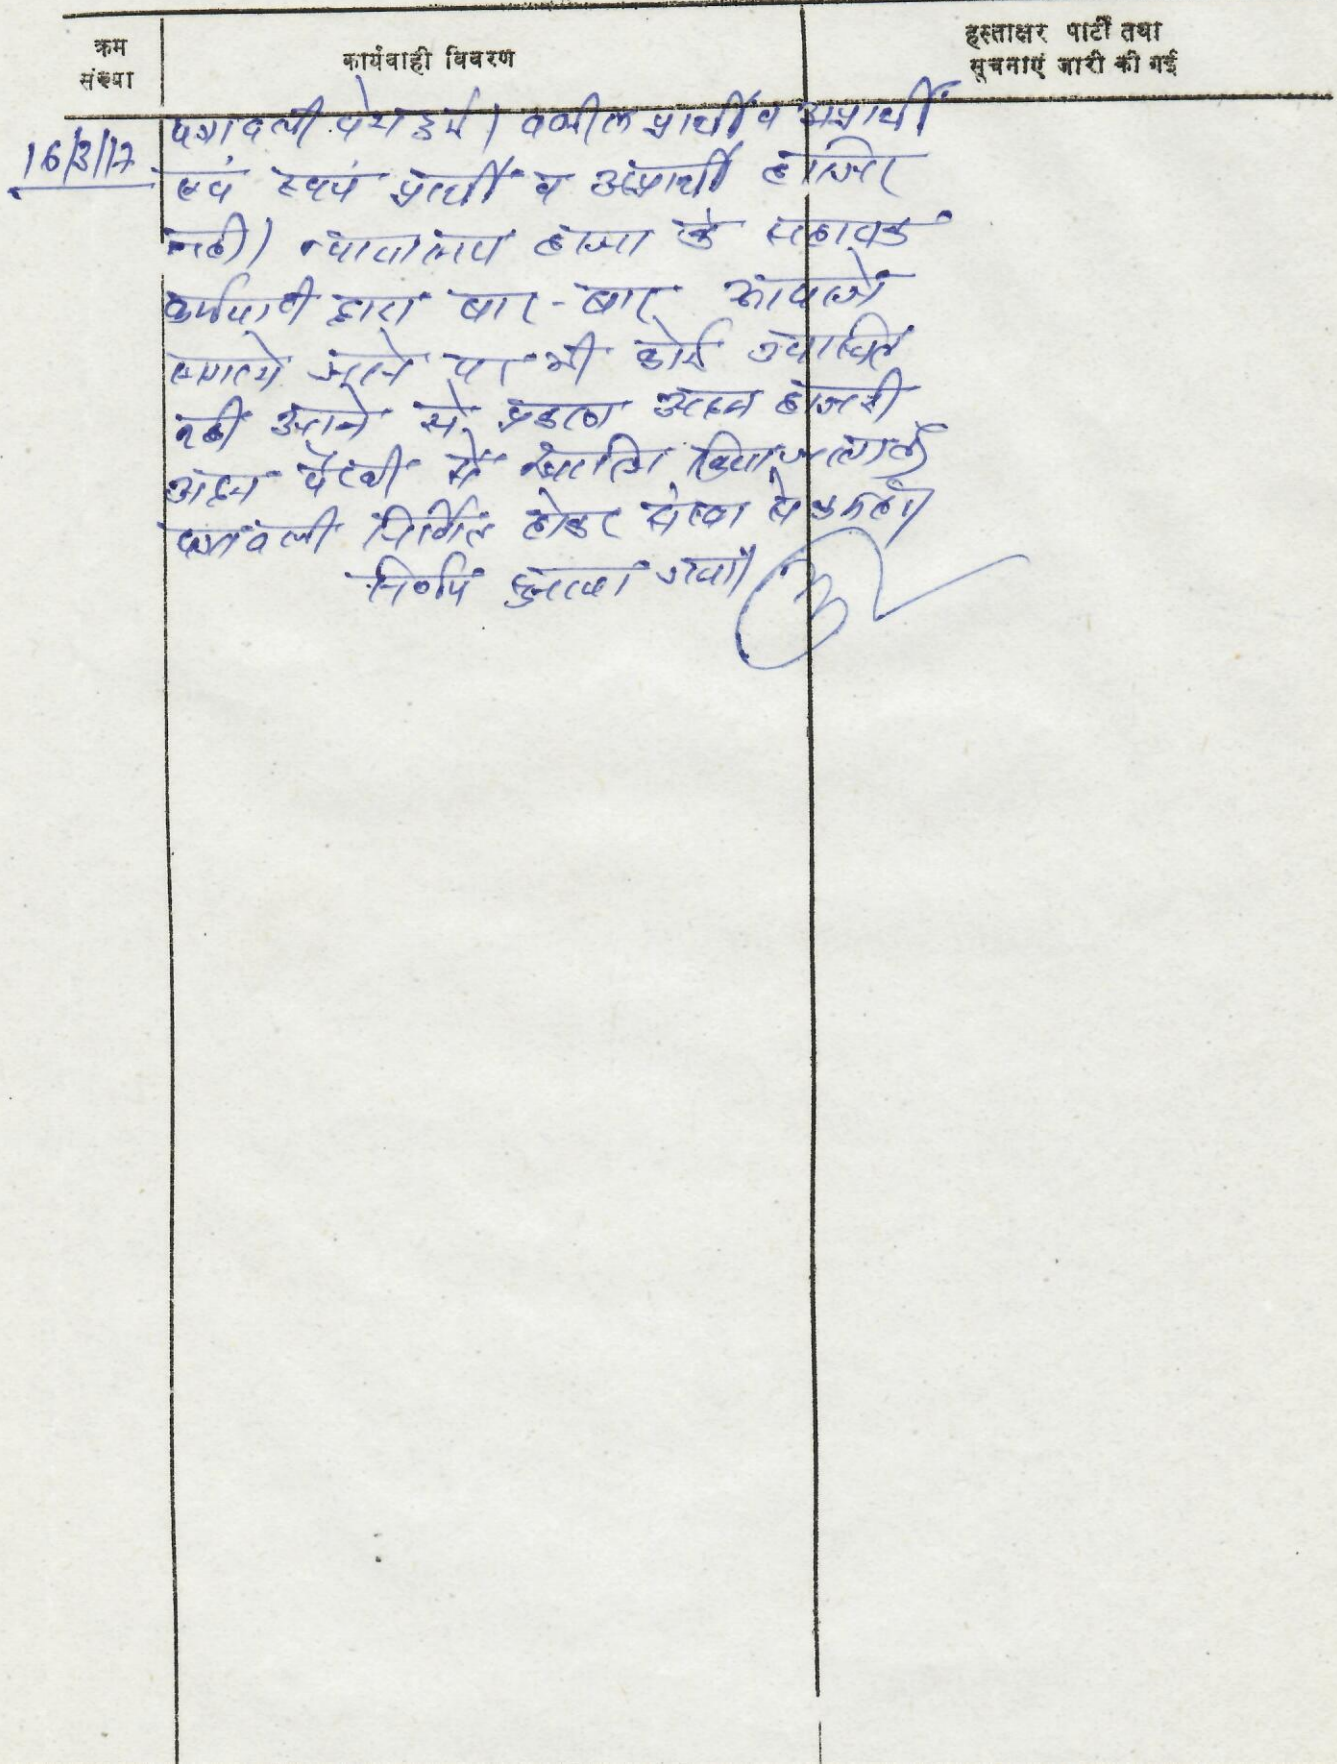 क्रम
संख्या
कार्यवाही विवरण
हस्ताक्षर पार्टी तथा
सूचनाएं जारी की गई
16/3/17
पत्रावली पेश हुई। वकील प्रार्थी व अप्रार्थी
एवं स्वयं प्रार्थी व अप्रार्थी हाजिर
नहीं। न्यायालय हाजा के सहायक
कर्मचारी द्वारा बार-बार आवाजें
लगाये जाने पर भी कोई उपस्थित
नहीं आने से प्रकरण अदम हाजरी
अदम पैरवी में खारिज किया जाता है।
पत्रावली निर्णित होकर संख्या से कम हो।
निर्णय सुनाया गया।